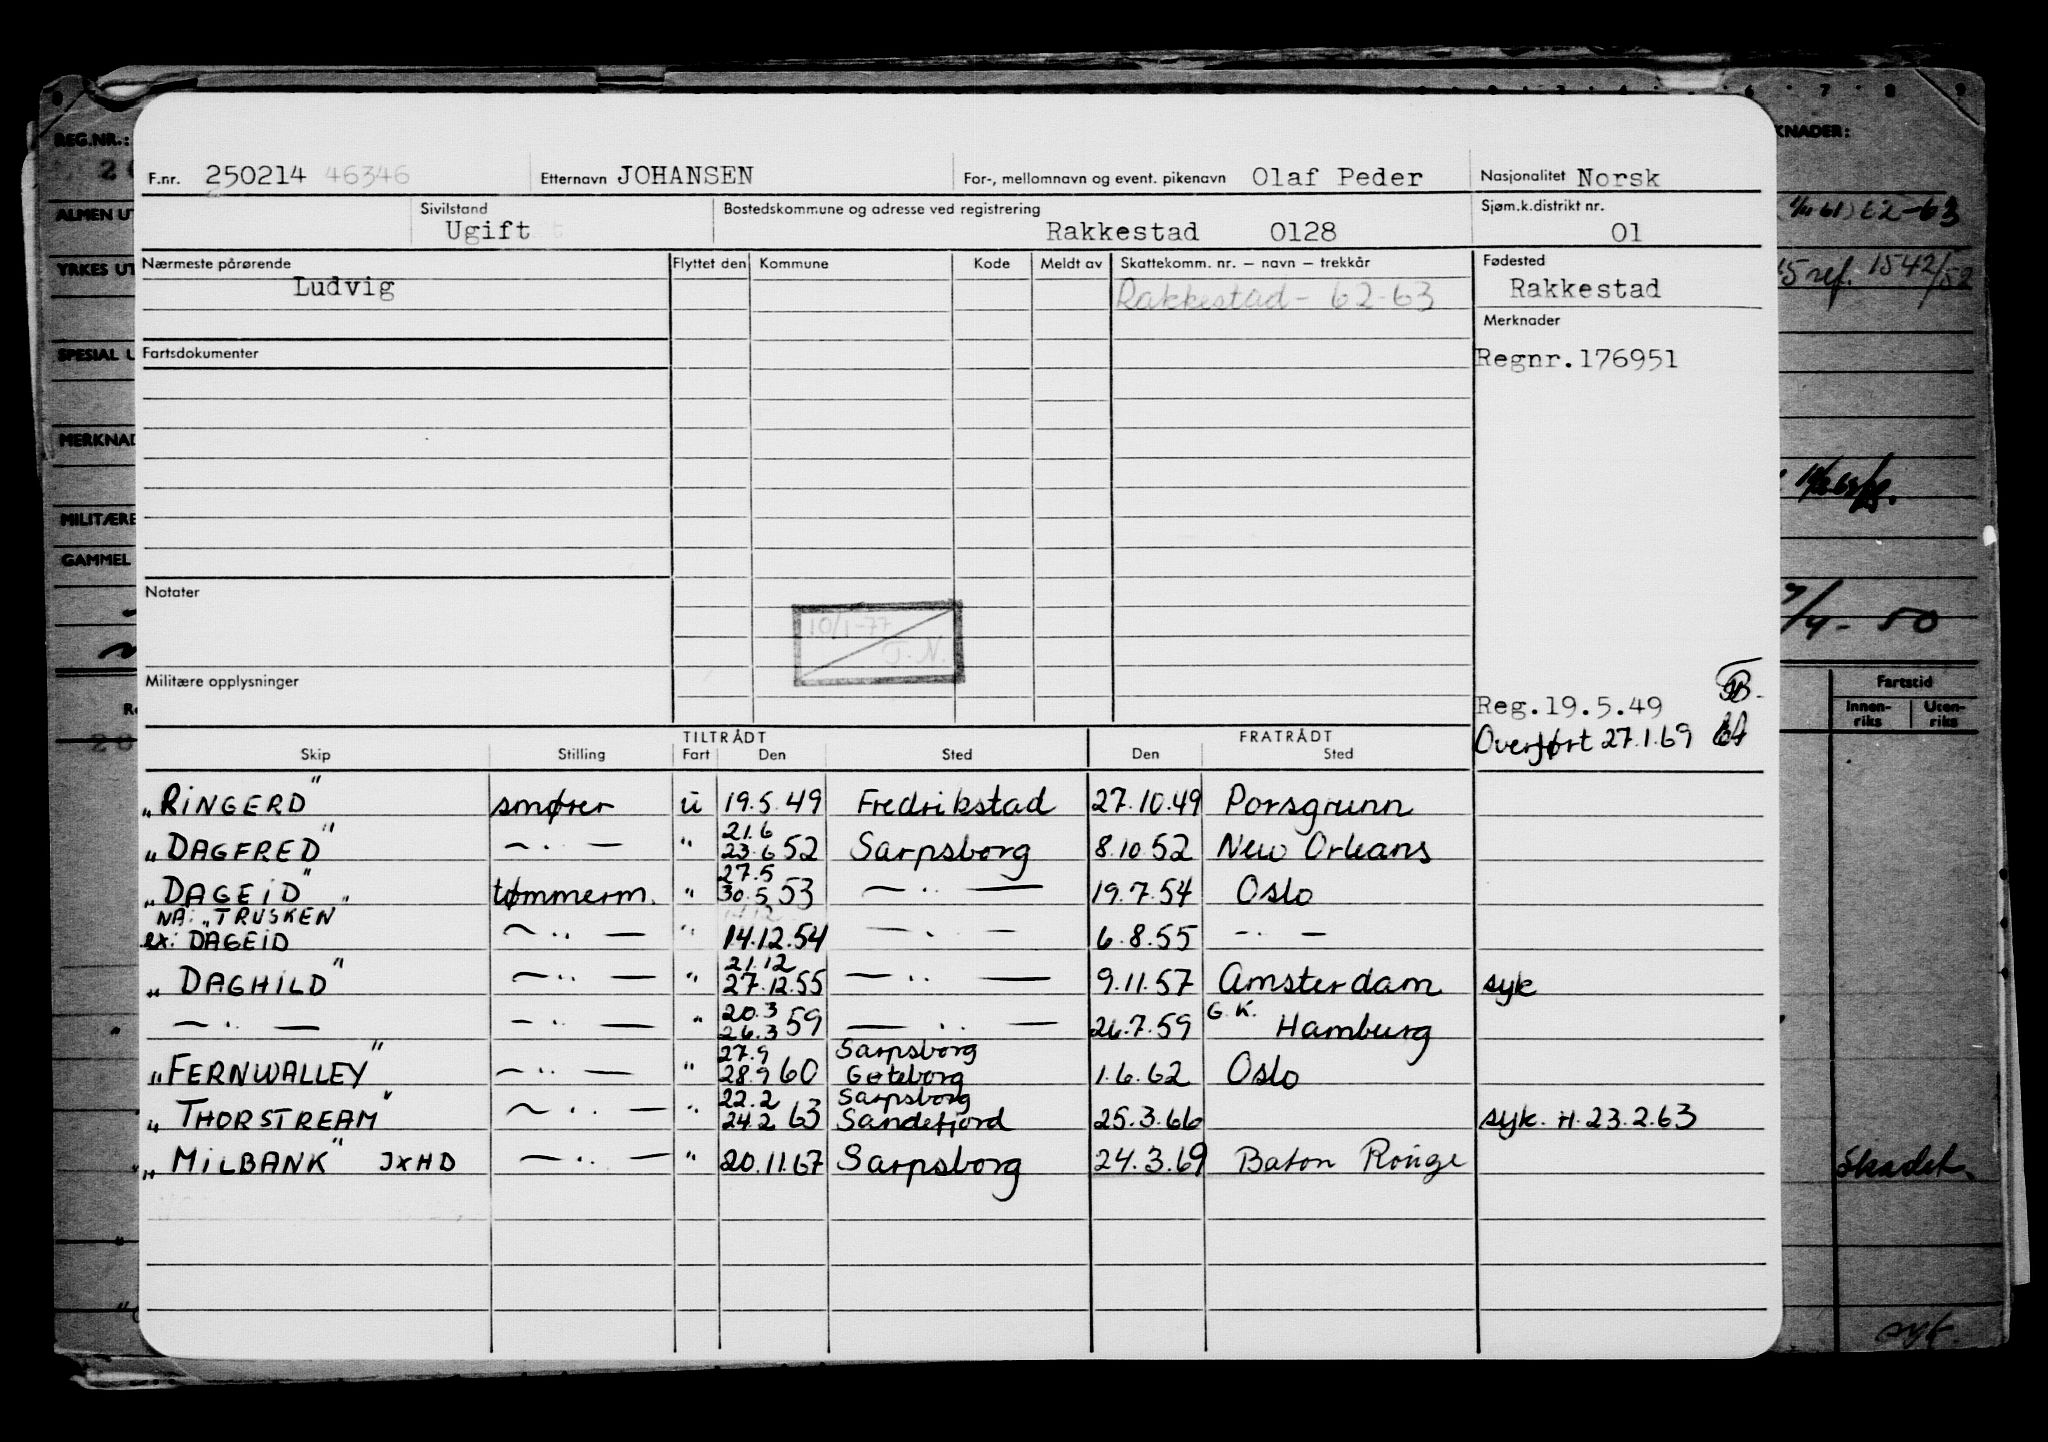 REG.NR.:
F.nr. 250214 46346 Etternavn JOHANSEN For-, mellomnavn og event. pikenavn Olaf Peder Nasjonalitet Norsk
Sivilstand Ugift Bostedskommune og adresse ved registrering Rakkestad 0128 Sjøm.k.distrikt nr. 01
Nærmeste pårørende Flyttet den Kommune Kode Meldt av Skattekomm. nr. – navn – trekkår Fødested
Ludvig Rakkestad - 62-63 Rakkestad
Merknader
Fartsdokumenter Regnr. 176951
Notater
10/1-77
T.N.
Militære opplysninger
Reg. 19.5.49
Overført 27.1.69
TILTRÅDT FRATRÅDT
Skip Stilling Fart Den Sted Den Sted
"RINGERD" smører u 19.5.49 Fredrikstad 27.10.49 Porsgrunn
"DAGFRED" — " — " 21.6 23.6 52 Sarpsborg 8.10.52 New Orleans
"DAGEID" tømmerm. " 27.5 30.5 53 — " — 19.7.54 Oslo
NA: "TRUSKEN"
ex: DAGEID — " — " 14.12.54 — " — 6.8.55 — " —
"DAGHILD" — " — " 21.12 27.12.55 — " — 9.11.57 Amsterdam syk
— " — — " — " 20.3 26.3 59 — " — 26.7.59 G.K. Hamburg
"FERNWALLEY" — " — " 27.9 28.9 60 Sarpsborg Gøteborg 1.6.62 Oslo
"THORSTREAM" — " — " 22.2 24.2 63 Sarpsborg Sandefjord 25.3.66 syk. H. 23.2.63
"MILBANK" JXHD — " — " 20.11.67 Sarpsborg 24.3.69 Baton Rouge
ALMEN UT
YRKES UT
SPESIAL U
MERKNAD
MILITÆRE
GAMMEL
KNADER:
62-63
ref. 1542/52
7/4-50
Fartstid
Innen-riks Uten-riks
Skadet.
syk.